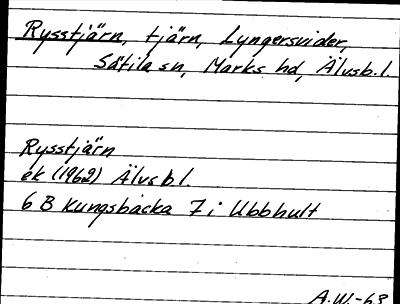 Rysstjärn, tjärn, Lyngersvider,
Sätila sn, Marks hd, Älvsb. l.
Rysstjärn
ek (1962) Älvsbl.
6 B Kungsbacka 7 i Ubbhult
A.W.-63